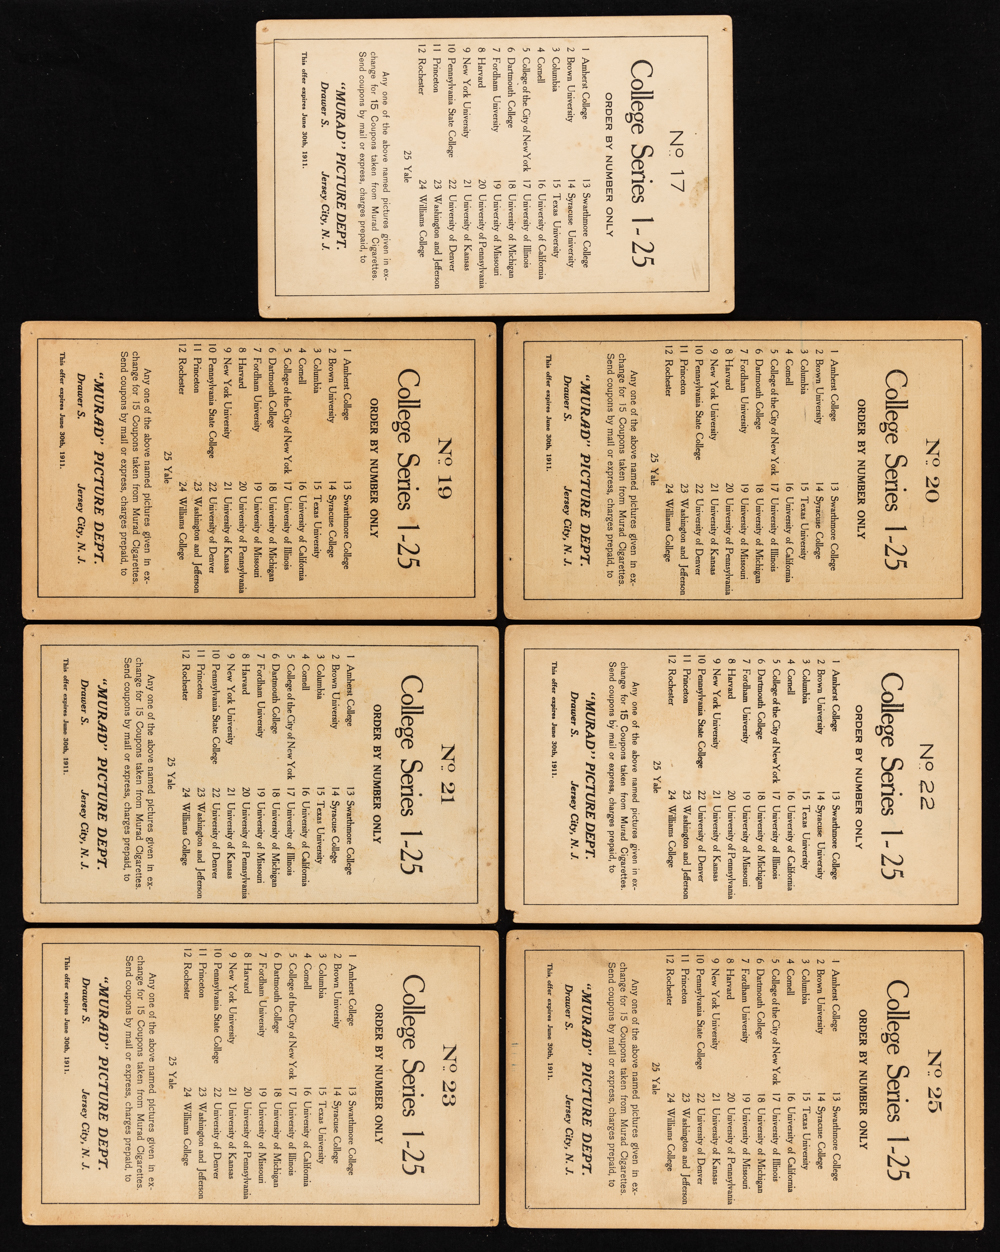 No. 17
College Series 1-25
ORDER BY NUMBER ONLY
1 Amherst College 13 Swarthmore College
2 Brown University 14 Syracuse University
3 Columbia 15 Texas University
4 Cornell 16 University of California
5 College of the City of New York 17 University of Illinois
6 Dartmouth College 18 University of Michigan
7 Fordham University 19 University of Missouri
8 Harvard 20 University of Pennsylvania
9 New York University 21 University of Kansas
10 Pennsylvania State College 22 University of Denver
11 Princeton 23 Washington and Jefferson
12 Rochester 24 Williams College
25 Yale
Any one of the above named pictures given in ex-
change for 15 Coupons taken from Murad Cigarettes.
Send coupons by mail or express, charges prepaid, to
"MURAD" PICTURE DEPT.
Drawer S. Jersey City, N. J.
This offer expires June 30th, 1911.
No. 19
College Series 1-25
ORDER BY NUMBER ONLY
1 Amherst College 13 Swarthmore College
2 Brown University 14 Syracuse College
3 Columbia 15 Texas University
4 Cornell 16 University of California
5 College of the City of New York 17 University of Illinois
6 Dartmouth College 18 University of Michigan
7 Fordham University 19 University of Missouri
8 Harvard 20 University of Pennsylvania
9 New York University 21 University of Kansas
10 Pennsylvania State College 22 University of Denver
11 Princeton 23 Washington and Jefferson
12 Rochester 24 Williams College
25 Yale
Any one of the above named pictures given in ex-
change for 15 Coupons taken from Murad Cigarettes.
Send coupons by mail or express, charges prepaid, to
"MURAD" PICTURE DEPT.
Drawer S. Jersey City, N. J.
This offer expires June 30th, 1911.
No. 20
College Series 1-25
ORDER BY NUMBER ONLY
1 Amherst College 13 Swarthmore College
2 Brown University 14 Syracuse College
3 Columbia 15 Texas University
4 Cornell 16 University of California
5 College of the City of New York 17 University of Illinois
6 Dartmouth College 18 University of Michigan
7 Fordham University 19 University of Missouri
8 Harvard 20 University of Pennsylvania
9 New York University 21 University of Kansas
10 Pennsylvania State College 22 University of Denver
11 Princeton 23 Washington and Jefferson
12 Rochester 24 Williams College
25 Yale
Any one of the above named pictures given in ex-
change for 15 Coupons taken from Murad Cigarettes.
Send coupons by mail or express, charges prepaid, to
"MURAD" PICTURE DEPT.
Drawer S. Jersey City, N. J.
This offer expires June 30th, 1911.
No. 21
College Series 1-25
ORDER BY NUMBER ONLY
1 Amherst College 13 Swarthmore College
2 Brown University 14 Syracuse College
3 Columbia 15 Texas University
4 Cornell 16 University of California
5 College of the City of New York 17 University of Illinois
6 Dartmouth College 18 University of Michigan
7 Fordham University 19 University of Missouri
8 Harvard 20 University of Pennsylvania
9 New York University 21 University of Kansas
10 Pennsylvania State College 22 University of Denver
11 Princeton 23 Washington and Jefferson
12 Rochester 24 Williams College
25 Yale
Any one of the above named pictures given in ex-
change for 15 Coupons taken from Murad Cigarettes.
Send coupons by mail or express, charges prepaid, to
"MURAD' PICTURE DEPT.
Drawer S. Jersey City, N. J.
This offer expires June 30th, 1911.
No. 22
College Series 1-25
ORDER BY NUMBER ONLY
1 Amherst College 13 Swarthmore College
2 Brown University 14 Syracuse University
3 Columbia 15 Texas University
4 Cornell 16 University of California
5 College of the City of New York 17 University of Illinois
6 Dartmouth College 18 University of Michigan
7 Fordham University 19 University of Missouri
8 Harvard 20 University of Pennsylvania
9 New York University 21 University of Kansas
10 Pennsylvania State College 22 University of Denver
11 Princeton 23 Washington and Jefferson
12 Rochester 24 Williams College
25 Yale
Any one of the above named pictures given in ex-
change for 15 Coupons taken from Murad Cigarettes.
Send coupons by mail or express, charges prepaid, to
"MURAD" PICTURE DEPT.
Drawer S. Jersey City, N. J.
This offer expires June 30th, 1911.
No. 23
College Series 1-25
ORDER BY NUMBER ONLY
1 Amherst College 13 Swarthmore College
2 Brown University 14 Syracuse College
3 Columbia 15 Texas University
4 Cornell 16 University of California
5 College of the City of New York 17 University of Illinois
6 Dartmouth College 18 University of Michigan
7 Fordham University 19 University of Missouri
8 Harvard 20 University of Pennsylvania
9 New York University 21 University of Kansas
10 Pennsylvania State College 22 University of Denver
11 Princeton 23 Washington and Jefferson
12 Rochester 24 Williams College
25 Yale
Any one of the above named pictures given in ex-
change for 15 Coupons taken from Murad Cigarettes.
Send coupons by mail or express, charges prepaid, to
"MURAD" PICTURE DEPT.
Drawer S. Jersey City, N. J.
This offer expires June 30th, 1911.
No. 25
College Series 1-25
ORDER BY NUMBER ONLY
1 Amherst College 13 Swarthmore College
2 Brown University 14 Syracuse College
3 Columbia 15 Texas University
4 Cornell 16 University of California
5 College of the City of New York 17 University of Illinois
6 Dartmouth College 18 University of Michigan
7 Fordham University 19 University of Missouri
8 Harvard 20 University of Pennsylvania
9 New York University 21 University of Kansas
10 Pennsylvania State College 22 University of Denver
11 Princeton 23 Washington and Jefferson
12 Rochester 24 Williams College
25 Yale
Any one of the above named pictures given in ex-
change for 15 Coupons taken from Murad Cigarettes.
Send coupons by mail or express, charges prepaid, to
"MURAD" PICTURE DEPT.
Drawer S. Jersey City, N. J.
This offer expires June 30th, 1911.